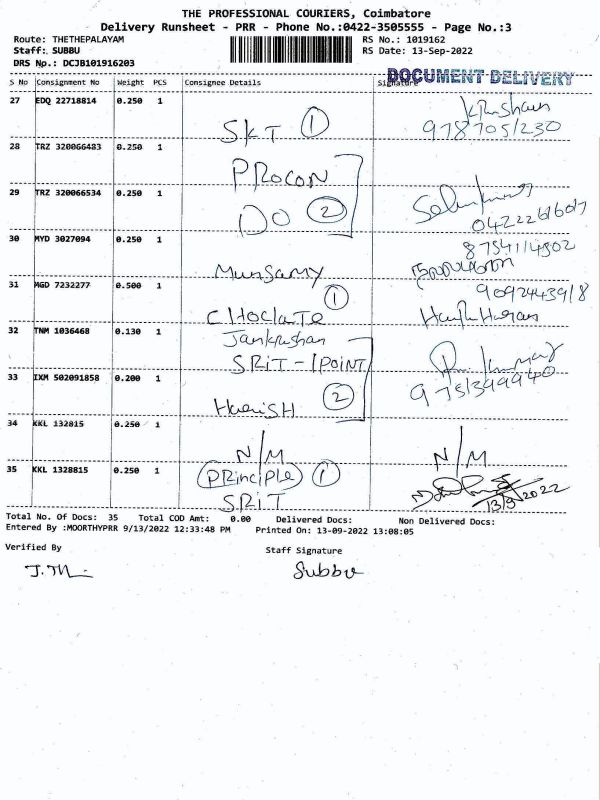 THE PROFESSIONAL COURIERS, Coimbatore
Delivery Runsheet - PRR - Phone No.:0422-3505555 - Page No.:3
Route: THETHEPALAYAM RS No.: 1019162
Staff: SUBBU RS Date: 13-Sep-2022
DRS No.: DCJB101916203
DOCUMENT DELIVERY
S No Consignment No Weight PCS Consignee Details Signature
27 EDQ 22718814 0.250 1
SKT 1 9787051230
28 TRZ 320066483 0.250 1
PROCON
29 TRZ 320066534 0.250 1
DO 2
30 MYD 3027094 0.250 1 8754114902
Munsamy
31 MGD 7232277 0.500 1 9092443918
1
CHOCLATE
32 TNM 1036468 0.130 1 Jankrishan
SRIT - 1 POINT
33 IXM 502091858 0.200 1 9751399940
HariSH 2
34 KKL 132815 0.250 1
N/M N/M
35 KKL 1328815 0.250 1 PRinciPle 1
SRIT 13/9/2022
Total No. Of Docs: 35 Total COD Amt: 0.00 Delivered Docs: Non Delivered Docs:
Entered By :MOORTHYPRR 9/13/2022 12:33:48 PM Printed On: 13-09-2022 13:08:05
Verified By Staff Signature
Subbu